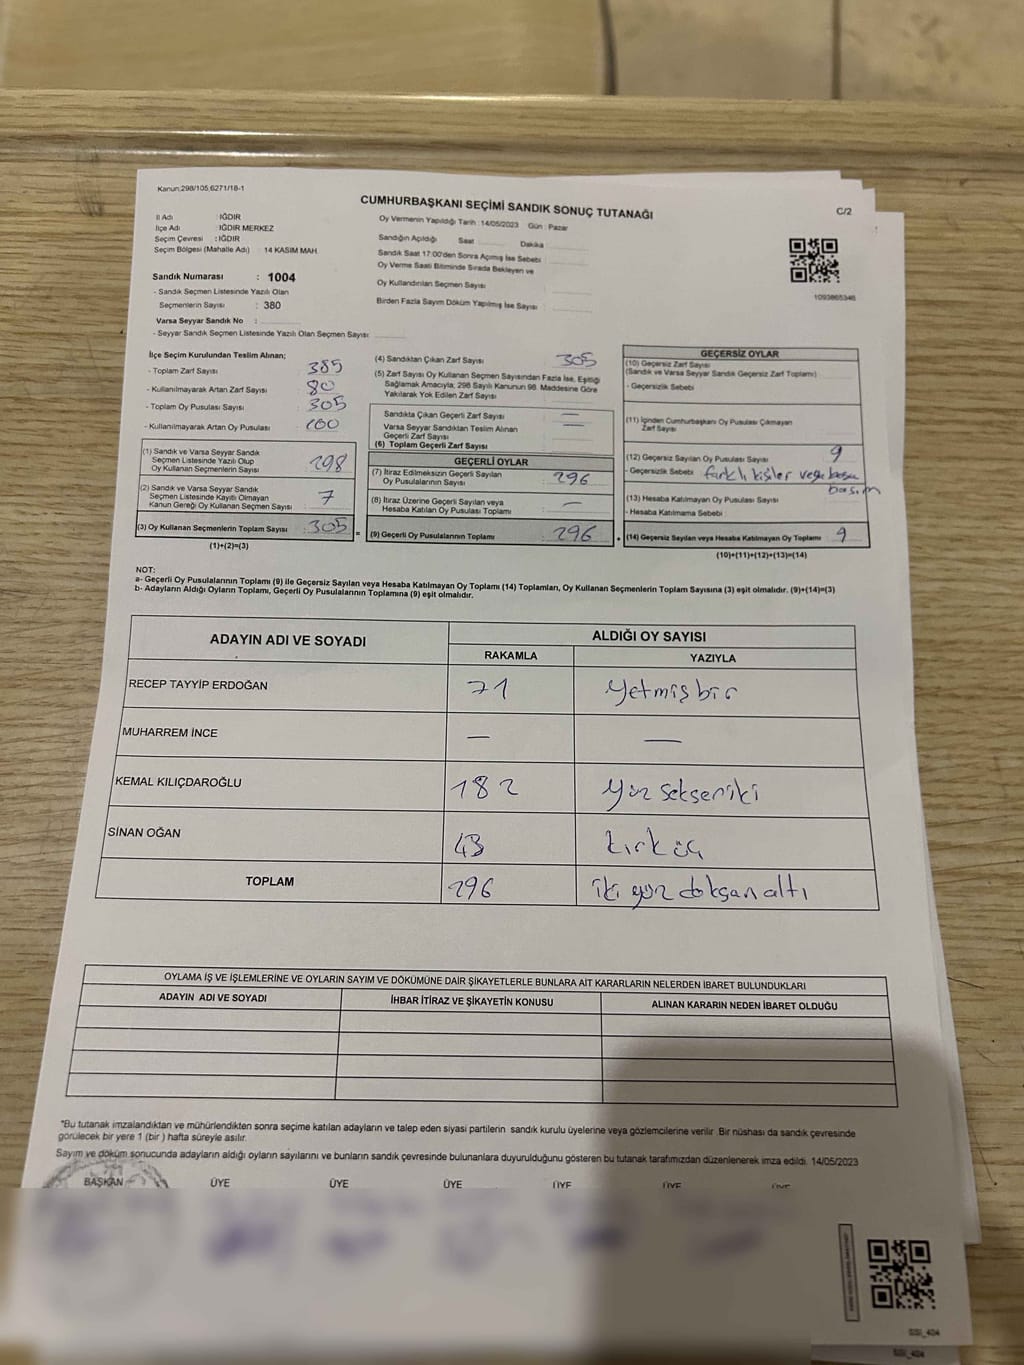 Kanun:298/105,6271/18-1
CUMHURBAŞKANI SEÇİMİ SANDIK SONUÇ TUTANAĞI
C/2
İl Adı : IĞDIR
İlçe Adı : IĞDIR MERKEZ
Seçim Çevresi : IĞDIR
Seçim Bölgesi (Mahalle Adı) : 14 KASIM MAH.
Sandık Numarası : 1004
- Sandık Seçmen Listesinde Yazılı Olan
Seçmenlerin Sayısı : 380
Varsa Seyyar Sandık No :
- Seyyar Sandık Seçmen Listesinde Yazılı Olan Seçmen Sayısı
Oy Vermenin Yapıldığı Tarih : 14/05/2023 Gün : Pazar
Sandığın Açıldığı Saat Dakika
Sandık Saat 17:00'den Sonra Açımış İse Sebebi
Oy Verme Saati Bitiminde Sırada Bekleyen ve
Oy Kullandırılan Seçmen Sayısı
Birden Fazla Sayım Döküm Yapılmış İse Sayısı
1093865346
İlçe Seçim Kurulundan Teslim Alınan;
- Toplam Zarf Sayısı : 385
- Kullanılmayarak Artan Zarf Sayısı : 80
- Toplam Oy Pusulası Sayısı : 305
- Kullanılmayarak Artan Oy Pusulası : 100
(1) Sandık ve Varsa Seyyar Sandık
Seçmen Listesinde Yazılı Olup
Oy Kullanan Seçmenlerin Sayısı : 298
(2) Sandık ve Varsa Seyyar Sandık
Seçmen Listesinde Kayıtlı Olmayan
Kanun Gereği Oy Kullanan Seçmen Sayısı : 7
(3) Oy Kullanan Seçmenlerin Toplam Sayısı : 305
(1)+(2)=(3)
(4) Sandıktan Çıkan Zarf Sayısı : 305
(5) Zarf Sayısı Oy Kullanan Seçmen Sayısından Fazla İse, Eşitliği
Sağlamak Amacıyla; 298 Sayılı Kanunun 98. Maddesine Göre
Yakılarak Yok Edilen Zarf Sayısı
Sandıkta Çıkan Geçerli Zarf Sayısı : —
Varsa Seyyar Sandıktan Teslim Alınan
Geçerli Zarf Sayısı : —
(6) Toplam Geçerli Zarf Sayısı
GEÇERLİ OYLAR
(7) İtiraz Edilmeksizin Geçerli Sayılan
Oy Pusulalarının Sayısı : 296
(8) İtiraz Üzerine Geçerli Sayılan veya
Hesaba Katılan Oy Pusulası Toplamı : —
= (9) Geçerli Oy Pusulalarının Toplamı : 296
GEÇERSİZ OYLAR
(10) Geçersiz Zarf Sayısı
(Sandık ve Varsa Seyyar Sandık Geçersiz Zarf Toplamı)
- Geçersizlik Sebebi
(11) İçinden Cumhurbaşkanı Oy Pusulası Çıkmayan
Zarf Sayısı
(12) Geçersiz Sayılan Oy Pusulası Sayısı : 9
- Geçersizlik Sebebi farklı kişiler
(13) Hesaba Katılmayan Oy Pusulası Sayısı
- Hesaba Katılmama Sebebi
+ (14) Geçersiz Sayılan veya Hesaba Katılmayan Oy Toplamı : 9
(10)+(11)+(12)+(13)=(14)
NOT:
a- Geçerli Oy Pusulalarının Toplamı (9) ile Geçersiz Sayılan veya Hesaba Katılmayan Oy Toplamı (14) Toplamları, Oy Kullanan Seçmenlerin Toplam Sayısına (3) eşit olmalıdır. (9)+(14)=(3)
b- Adayların Aldığı Oyların Toplamı, Geçerli Oy Pusulalarının Toplamına (9) eşit olmalıdır.
ADAYIN ADI VE SOYADI ALDIĞI OY SAYISI
RAKAMLA YAZIYLA
RECEP TAYYİP ERDOĞAN 71 Yetmişbir
MUHARREM İNCE — —
KEMAL KILIÇDAROĞLU 182 Yüz seksen iki
SİNAN OĞAN 43 kırk üç
TOPLAM 296 iki yüz doksan altı
OYLAMA İŞ VE İŞLEMLERİNE VE OYLARIN SAYIM VE DÖKÜMÜNE DAİR ŞİKAYETLERLE BUNLARA AİT KARARLARIN NELERDEN İBARET BULUNDUKLARI
ADAYIN ADI VE SOYADI İHBAR İTİRAZ VE ŞİKAYETİN KONUSU ALINAN KARARIN NEDEN İBARET OLDUĞU
*Bu tutanak imzalandıktan ve mühürlendikten sonra seçime katılan adayların ve talep eden siyasi partilerin sandık kurulu üyelerine veya gözlemcilerine verilir. Bir nüshası da sandık çevresinde
görülecek bir yere 1 (bir ) hafta süreyle asılır.
Sayım ve döküm sonucunda adayların aldığı oyların sayılarını ve bunların sandık çevresinde bulunanlara duyurulduğunu gösteren bu tutanak tarafımızdan düzenlenerek imza edildi. 14/05/2023
BAŞKAN ÜYE ÜYE ÜYE ÜYE ÜYE ÜYE
SSI_404
SSI_404